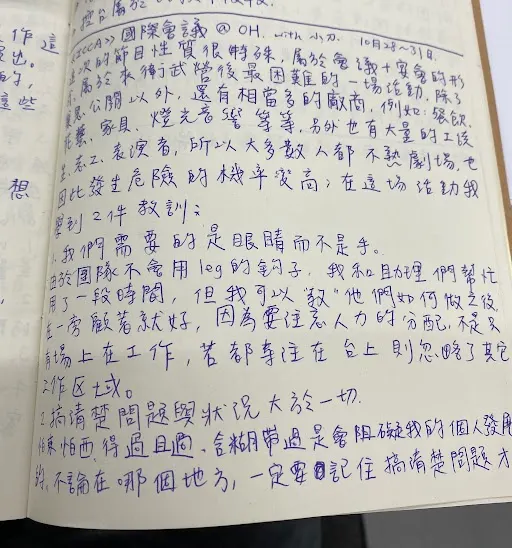 《ICCA》國際會議 @ OH. with 小刀. 10月28~31日.
這次的節目性質很特殊,屬於會議+宴會的形
式,屬於來衛武營後最困難的一場活動,除了
公關以外,還有相當多的廠商,例如:餐飲、
花藝、家具、燈光音響等等,另外也有大量的工讀
生、志工、表演者,所以大多數人都不熟劇場,也
因此發生危險的機率變高;在這場活動我
學到2件教訓:
1.我們需要的是眼睛而不是手。
由於團隊不會用leg的鉤子,我和助理們幫忙
用了一段時間,但我可以"教"他們如何做之後,
在一旁顧著就好,因為要注意人力的分配,不是只
有場上在工作,若都專注在台上則忽略了其它
工作区域。
2.搞清楚問題與狀況大於一切.
怕東怕西、得過且過、含糊帶過是會阻礙我的個人發展
的,不論在哪個地方,一定要記住搞清楚問題才
作這
出。
的,
這些
想